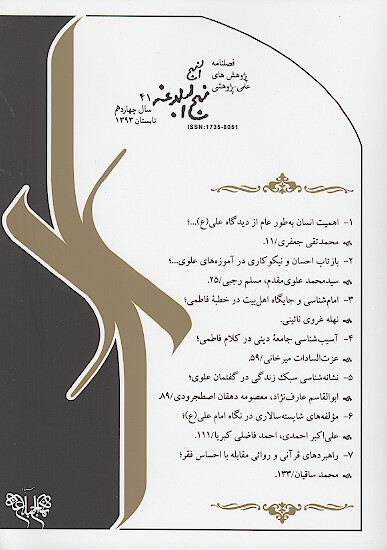 فصلنامه
پژوهش های
علمی-پژوهشی
النهج
نهج البلاغه
۴۱
سال چهاردهم
تابستان ۱۳۹۳
ISSN:1735-8051
۱- اهمیت انسان به‌طور عام از دیدگاه علی(ع)...؛
محمدتقی جعفری/۱۱.
۲- بازتاب احسان و نیکوکاری در آموزه‌های علوی...؛
سیدمحمد علوی‌مقدم، مسلم رجبی/۲۵.
۳- امام‌شناسی و جایگاه اهل‌بیت در خطبهٔ فاطمی؛
نهله غروی نائینی.
۴- آسیب‌شناسی جامعهٔ دینی در کلام فاطمی؛
عزت‌السادات میرخانی/۵۹.
۵- نشانه‌شناسی سبک زندگی در گفتمان علوی؛
ابوالقاسم عارف‌نژاد، معصومه دهقان اصطجرودی/۸۹.
۶- مؤلفه‌های شایسته‌سالاری در نگاه امام علی(ع)؛
علی‌اکبر احمدی، احمد فاضلی کبریا/۱۱۱.
۷- راهبردهای قرآنی و روائی مقابله با احساس فقر؛
محمد ساقیان/۱۳۳.